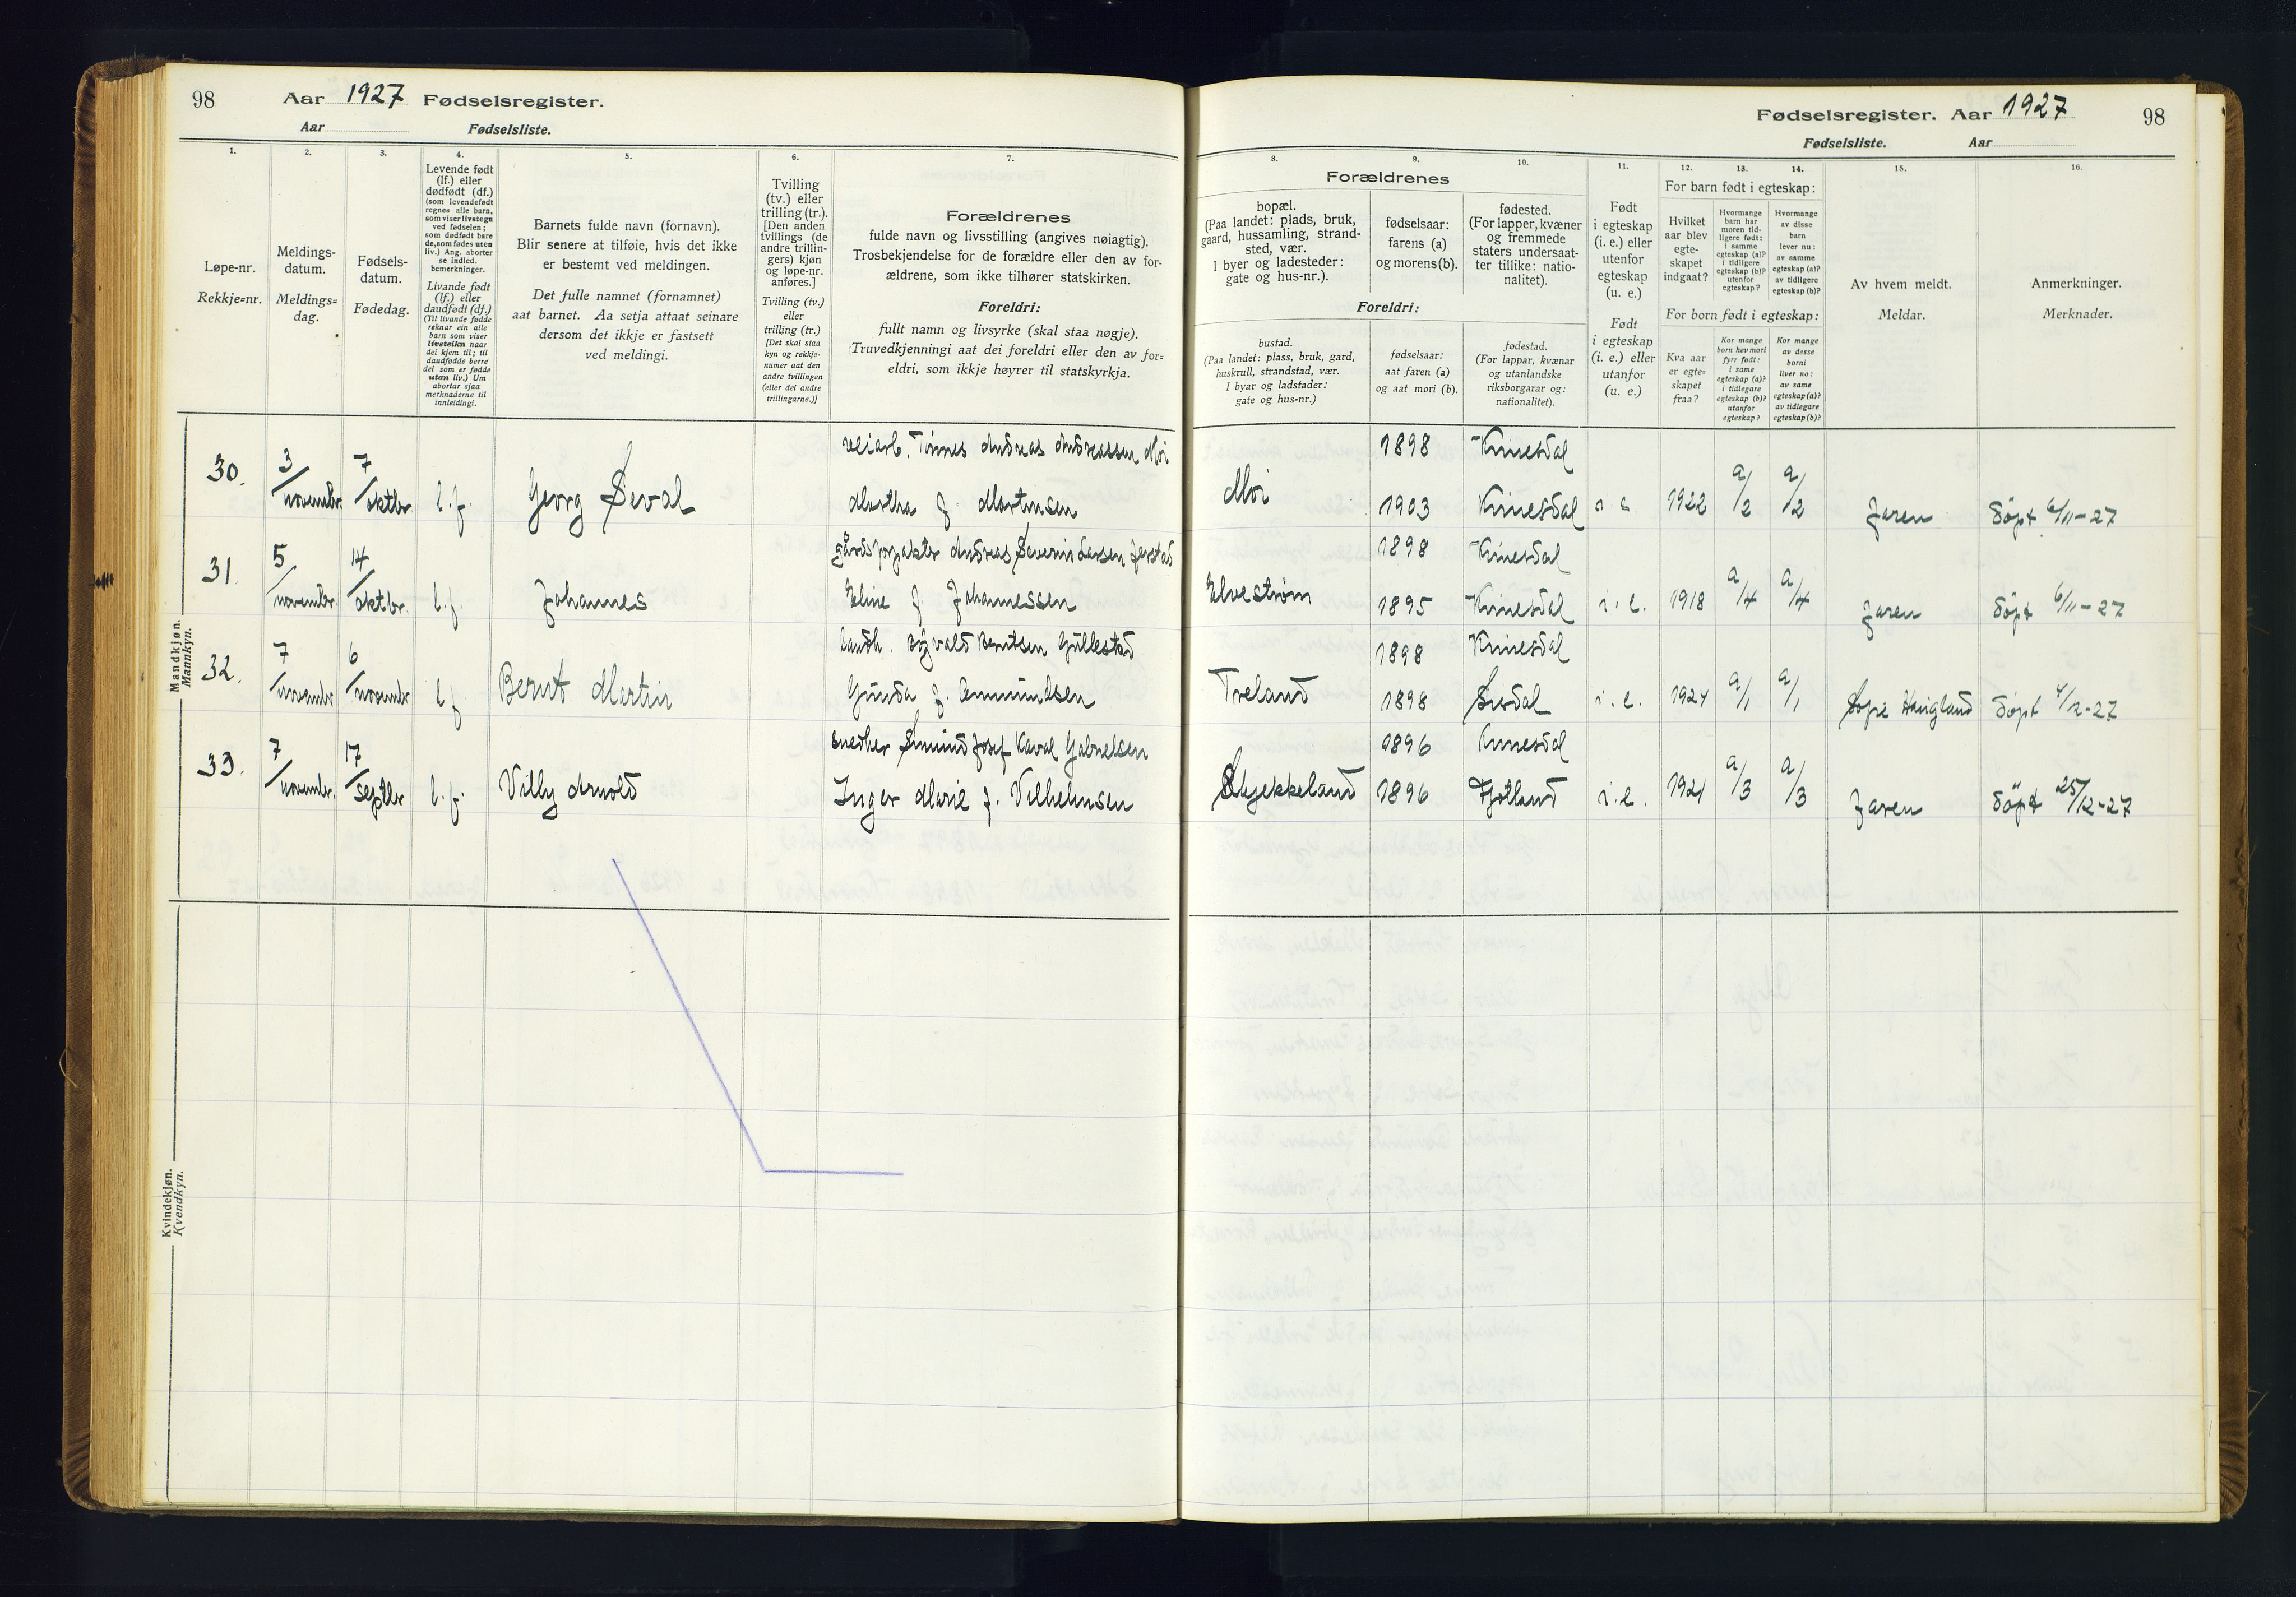 98 Aar 1927 Fødselsregister.
Aar Fødselsliste.
Fødselsregister. Aar 1927 98
Fødselsliste. Aar
1.
Løpe-nr.
Rekkje=nr.
2.
Meldings-
datum.
Meldings=
dag.
3.
Fødsels-
datum.
Fødedag.
4.
Levende født
(lf.) eller
dødfødt (df.)
(som levendefødt
regnes alle barn,
som viser livstegn
ved fødselen;
som dødfødt bare
de, som fødes uten
liv.) Ang. aborter
se indled.
bemerkninger.
Livande født
(lf.) eller
daudfødt (df.)
(Til livande fødde
reknar ein alle
barn som viser
livsteikn naar
dei kjem til; til
daudfødde berre
dei som er fødde
utan liv.) Um
abortar sjaa
merknaderne til
innleidingi.
5.
Barnets fulde navn (fornavn).
Blir senere at tilføie, hvis det ikke
er bestemt ved meldingen.
Det fulle namnet (fornamnet)
aat barnet. Aa setja attaat seinare
dersom det ikkje er fastsett
ved meldingi.
6.
Tvilling
(tv.) eller
trilling (tr.).
[Den anden
tvillings (de
andre trillin-
gers) kjøn
og løpe-nr.
anføres.]
Tvilling (tv.)
eller
trilling (tr.)
[Det skal staa
kyn og rekkje-
numer aat den
andre tvillingen
(eller dei andre
trillingarne.)]
7.
Forældrenes
fulde navn og livsstilling (angives nøiagtig).
Trosbekjendelse for de forældre eller den av for-
ældrene, som ikke tilhører statskirken.
Foreldri:
fullt namn og livsyrke (skal staa nøgje).
(Truvedkjenningi aat dei foreldri eller den av for=
eldri, som ikkje høyrer til statskyrkja.
Forældrenes
8.
bopæl.
(Paa landet: plads, bruk,
gaard, hussamling, strand-
sted, vær.
I byer og ladesteder:
gate og hus-nr.).
9.
fødselsaar:
farens (a)
og morens (b).
10.
fødested.
(For lapper, kvæner
og fremmede
staters undersaat-
ter tillike: natio-
nalitet).
Foreldri:
bustad.
(Paa landet: plass, bruk, gard,
huskrull, strandstad, vær.
I byar og ladstader:
gate og hus=nr.)
fødselsaar:
aat faren (a)
og aat mori (b).
fødestad.
(For lappar, kvænar
og utanlandske
riksborgarar og:
nationalitet).
11.
Født
i egteskap
(i. e.) eller
utenfor
egteskap
(u. e.)
Født
i egteskap
(i. e.) eller
utanfor
(u. e.)
12. 13. 14.
For barn født i egteskap:
Hvilket
aar blev
egte-
skapet
indgaat?
Hvormange
barn har
moren tid-
ligere født:
i samme
egteskap (a)?
i tidligere
egteskap (b)?
utenfor
egteskap?
Hvormange
av disse
barn
lever nu:
av samme
egteskap (a)?
av tidligere
egteskap (b)?
For born født i egteskap:
Kva aar
er egte=
skapet
fraa?
Kor mange
born hev mori
fyrr født:
i same
egteskap (a)?
i tidlegare
egteskap (b)?
utanfor
egteskap?
Kor mange
av desse
borni
liver no:
av same
egteskap (a)?
av tidlegare
egteskap (b)?
15.
Av hvem meldt.
Meldar.
16.
Anmerkninger.
Merknader.
Mandkjøn.
Mannkyn.
30. 3/novembr. 7/oktbr l.f. Georg Seval
veiarb. Tønnes Andreas Andreassen Moi
Martha f. Martinsen
Moi 1898 Kvinesdal
1903 Kvinesdal i e 1922 a/2 a/2 Jaren Døpt 6/11-27
31. 5/novembr. 14/oktbr. l.f. Johannes
gårdsforpakter Andreas Severin Larsen Jerstad
Eline f. Johannessen
Elvestrøm 1898 Kvinesdal
1895 Kvinesdal i. e. 1918 a/4 a/4 Jaren Døpt 6/11-27
32. 7/novembr 6/novembr l.f. Bernt Martin
landh. Berntsen Gullestad
Gunda f. Ommundsen
Treland 1898 Kvinesdal
1898 Sirdal i. e. 1924 a/1 a/1 Haugland Døpt 4/12-27
33. 7/novembr. 17/septbr l.f. Villy Arnold
snedker Josef Gabrielsen
Inger Marie f. Vilhelmsen
1896 Kvinesdal
1896 Fjotland i. e. 1921 a/3 a/3 Jaren Døpt 25/12-27
Kvindekjøn.
Kvendkyn.